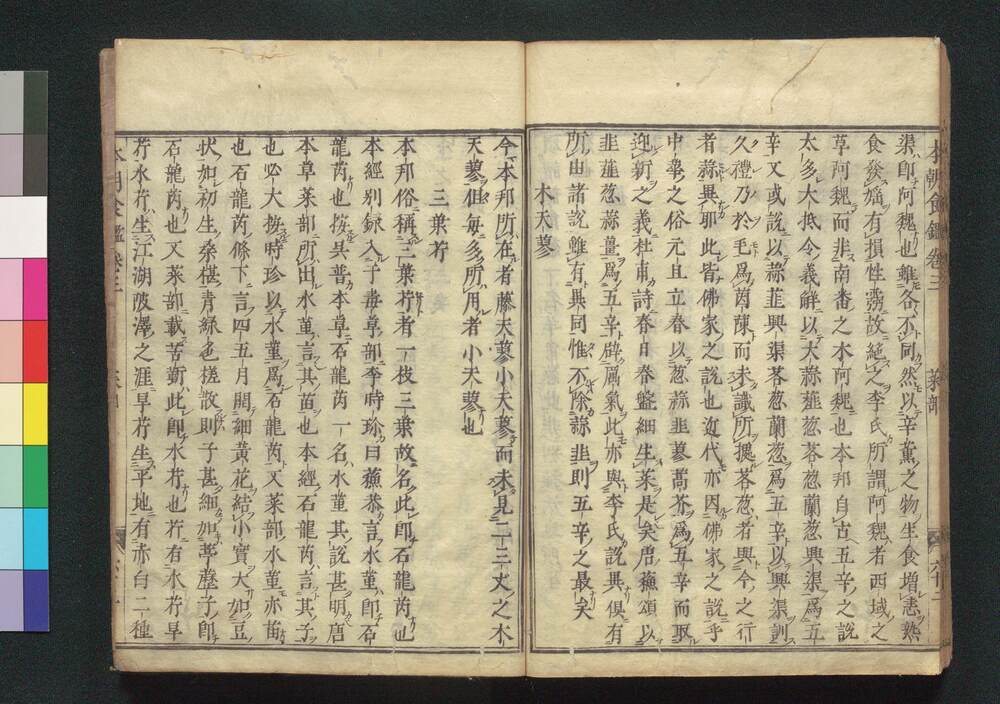 渠即阿魏也雖各不同然以辛薫之物生食増恚熟
食發婬有損性霊故絶之李氏所謂阿魏者西域之
草阿魏而非南番之木阿魏也本邦自古五辛之説
太多大抵令義解以大蒜薤葱茖葱蘭葱興渠爲五
辛又或説以蒜韮興渠茖葱蘭葱爲五辛以興渠訓
久禮乃於毛爲茵蔯而未識所據茖葱者與今之行
者蒜異耶此皆佛家之説也近代亦因佛家之説乎
中華之俗元旦立春以葱蒜韭蓼蒿芥爲五辛而取
迎新之義杜甫詩春日春盤細生菜是矣唐蘓頌以
韭薤葱蒜薑爲五辛辟厲氣此亦與李氏説異倶有
所由諸説雖有異同惟不除蒜韭則五辛之最矣
木天蓼
今本邦所在者藤天蓼小天蓼而未見二十三丈之木
天蓼但毎多所用者小天蓼也
三葉芹
本邦俗稱三葉芹者一枝三葉故名此即石龍芮也
本經別録入于毒草部李時珍曰蘓恭言水菫即石
龍芮也按呉普本草石龍芮一名水菫其説甚明唐
本草菜部所出水菫言其苗也本經石龍芮言其子
也必大按時珍以水菫爲石龍芮又菜部水菫亦苗
也石龍芮條下言四五月開細黄花結小實大如豆
状如初生桑椹青緑色搓散則子甚細如葶藶子即
石龍芮也又菜部載苦菫此即水芹也芹有水芹旱
芹水芹生江湖陂澤之涯旱芹生平地有赤白二種